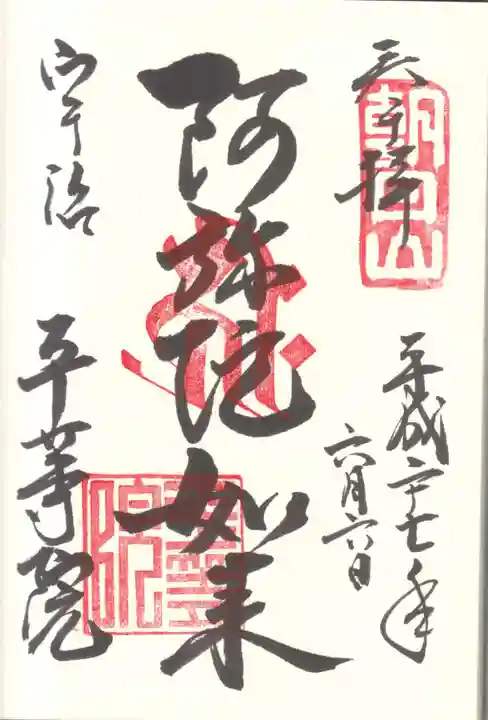 奉拝
朝日山
平成二十七年
六月六日
阿弥陀如来
平等院
宇治
平等院